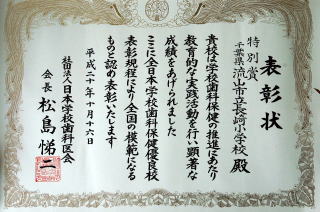 表彰状
特別賞
千葉県流山市立長崎小学校 殿
貴校は学校歯科保健の推進にあたり
教育的な実践活動を行い顕著な
成績をあげられました
ここに全日本学校歯科保健優良校
表彰規程により全国の模範になる
ものと認め表彰いたします
平成二十年十月十六日
社団法人日本学校歯科医会
会長 松島悌二